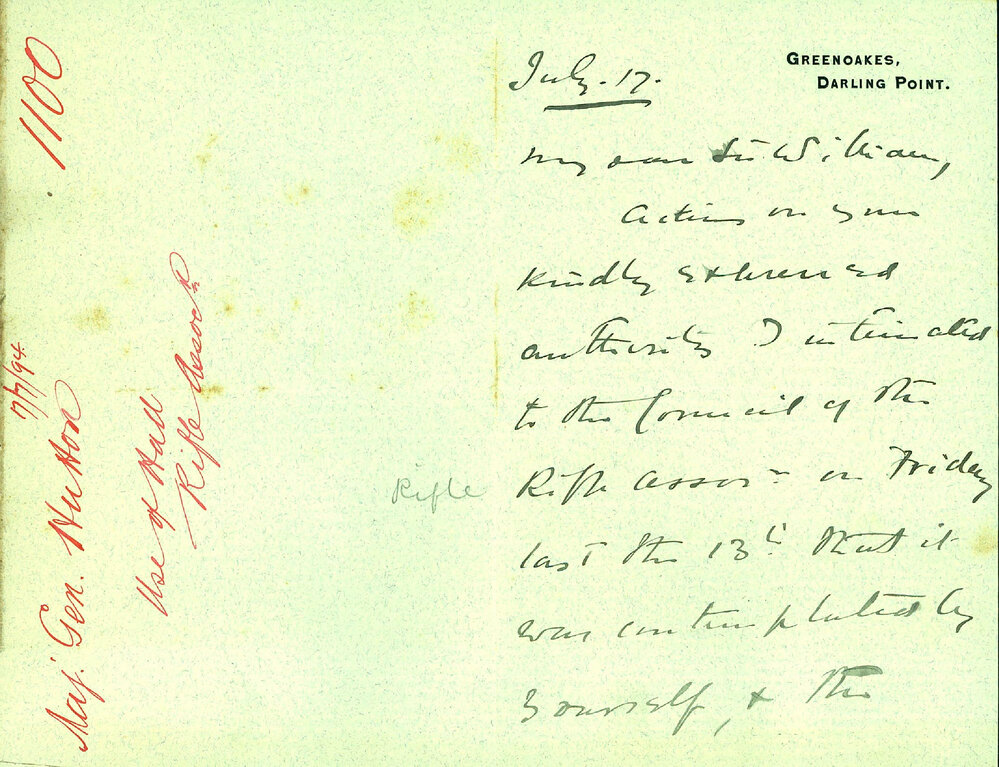 1100
Maj. Gen. Hutton
17/7/94
Use of Hall
Rifle Assoctn
Rifle
GREENOAKES,
DARLING POINT.
July. 17.
My dear Sir William,
Acting on your
kindly expressed
authority I intimated
to the Council of the
Rifle Assocn on Friday
last the 13th that it
was contemplated by
yourself, & the